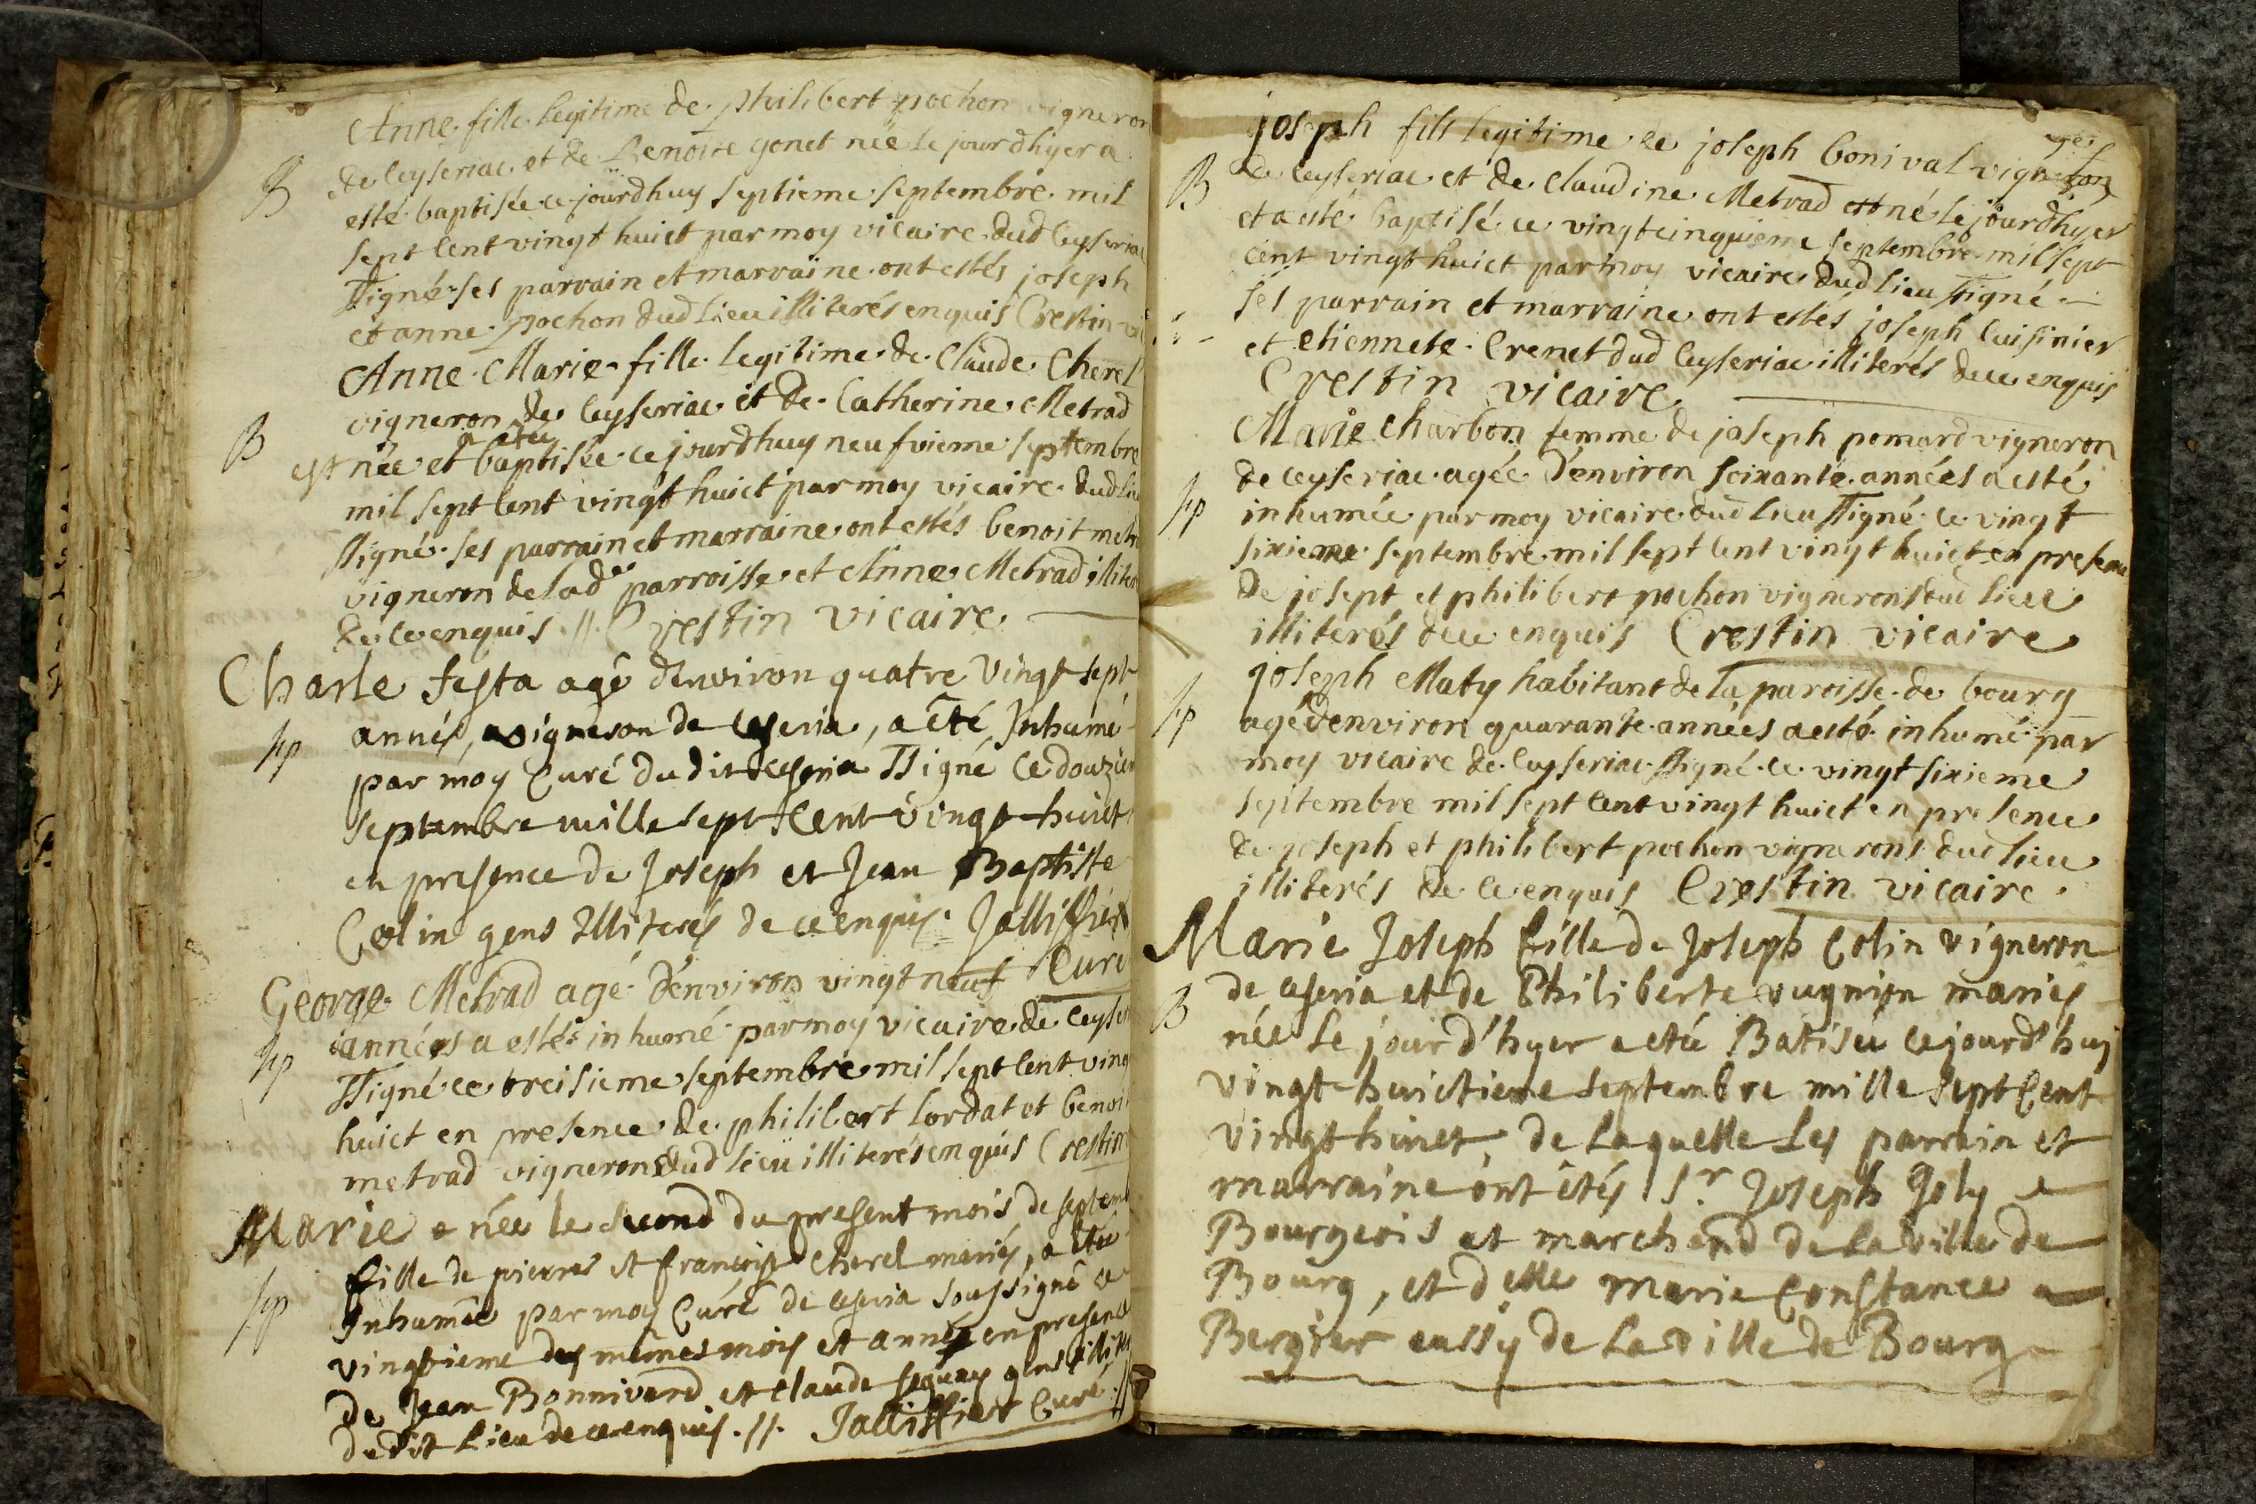 Anne fille legitime de philibert pochon vigneron
B
de Ceyseriac et de Benoite gonet née le jourdhyer a
esté baptisée ce jourdhuy septieme septembre mil
sept cent vingt huict par moy vicaire dud Ceyseriac
ssigné ses parrain et marraine ont estés joseph
et anne pochon dud lieu illiterés enquis Crestin
Anne Marie fille legitime de Claude Cherel
vigneron de Ceyseriac et de Catherine Metrad
a etée
B
est née et baptisée ce jourdhuy neufvieme septembre
mil sept cent vingt huict par moy vicaire dud lieu
ssigné ses parrain et marraine ont estés benoit met
vigneron de lad parroisse et Anne Metrad illiter
de ce enquis // Crestin vicaire
Charle festa agé denviron quatre vingt sept
sp
années, vigneron de Ceseria, a êté Inhumé
par moy Curé du dit Ceseria ssigné ce douzie
septembre mille sept Cent vingt huict
en presence de Joseph et Jean Baptiste
Colin gens Illiterés de ce enquis. Jallifier
Curé
George Metrad agé d'environ vingt neuf
sp
années a estés inhumé par moy vicaire de ceyser
ssigné ce treisieme septembre mil sept cent ving
huict en presence de philibert Cordat et benoi
metrad vignerons dud lieu illiterés enquis Crestin
Marie née le second du present mois de septemb
fille de pierre et françoise Cherel mariés, a étée
sp
Inhumée par moy Curé de Ceseria soussigné ce
vingtieme des mêmes mois et année en presence
de Jean Bonnivard et Claude gens illit
du dit Lieu de ce enquis. //. Jallifier Curé
joseph fils legitime de joseph bonival vigneron
B
de Ceyseriac et de Claudine Metrad est né le jourdhyer
et a esté baptisé ce vingtcinquieme septembre mil sept
cent vingt huict par moy vicaire dud lieu ssigné
ses parrain et marraine ont estés joseph Cuisinier
et etiennete Crenet dud Ceyseriac illiterés de ce enquis
Crestin vicaire
Marie Charbon femme de joseph pomard vigneron
de ceyseriac agée d'environ soixante années a esté
sp
inhumée par moy vicaire dud lieu ssigné ce vingt
sixieme septembre mil sept cent vingt huict en presence
de josept et philibert pochon vignerons dud lieu
illiterés de ce enquis Crestin vicaire
joseph Maty habitant de la paroisse de bourg
sp
agé d'environ quarante années a esté inhumé par
moy vicaire de Ceyseriac ssigné ce vingt sixieme
septembre mil sept cent vingt huict en presence
de joseph et philibert pochon vignerons dud lieu
illiterés de ce enquis Crestin vicaire.
Marie Joseph fille de Joseph Colin vigneron
de Ceseria et de Philiberte vugnion mariés
B
née le jour d'hyer a etée Batisée ce jourd'huy
vingt-huictieme septembre mille sept Cent
vingt huict, de laquelle Les parrain et
marraine ont êtés Sr Joseph Joly
Bourgeois et marchand de La ville de
Bourg, et delle marie Constance
Bergier aussy de La ville de Bourg